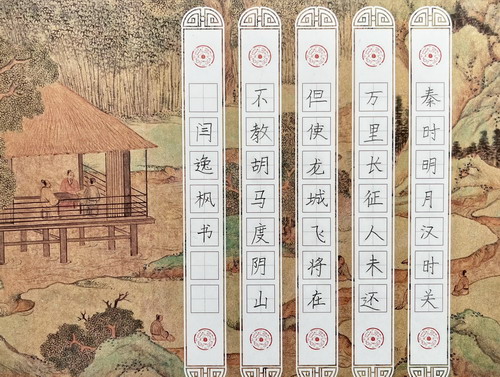 秦时明月汉时关
万里长征人未还
但使龙城飞将在
不教胡马度阴山
闫逸枫书